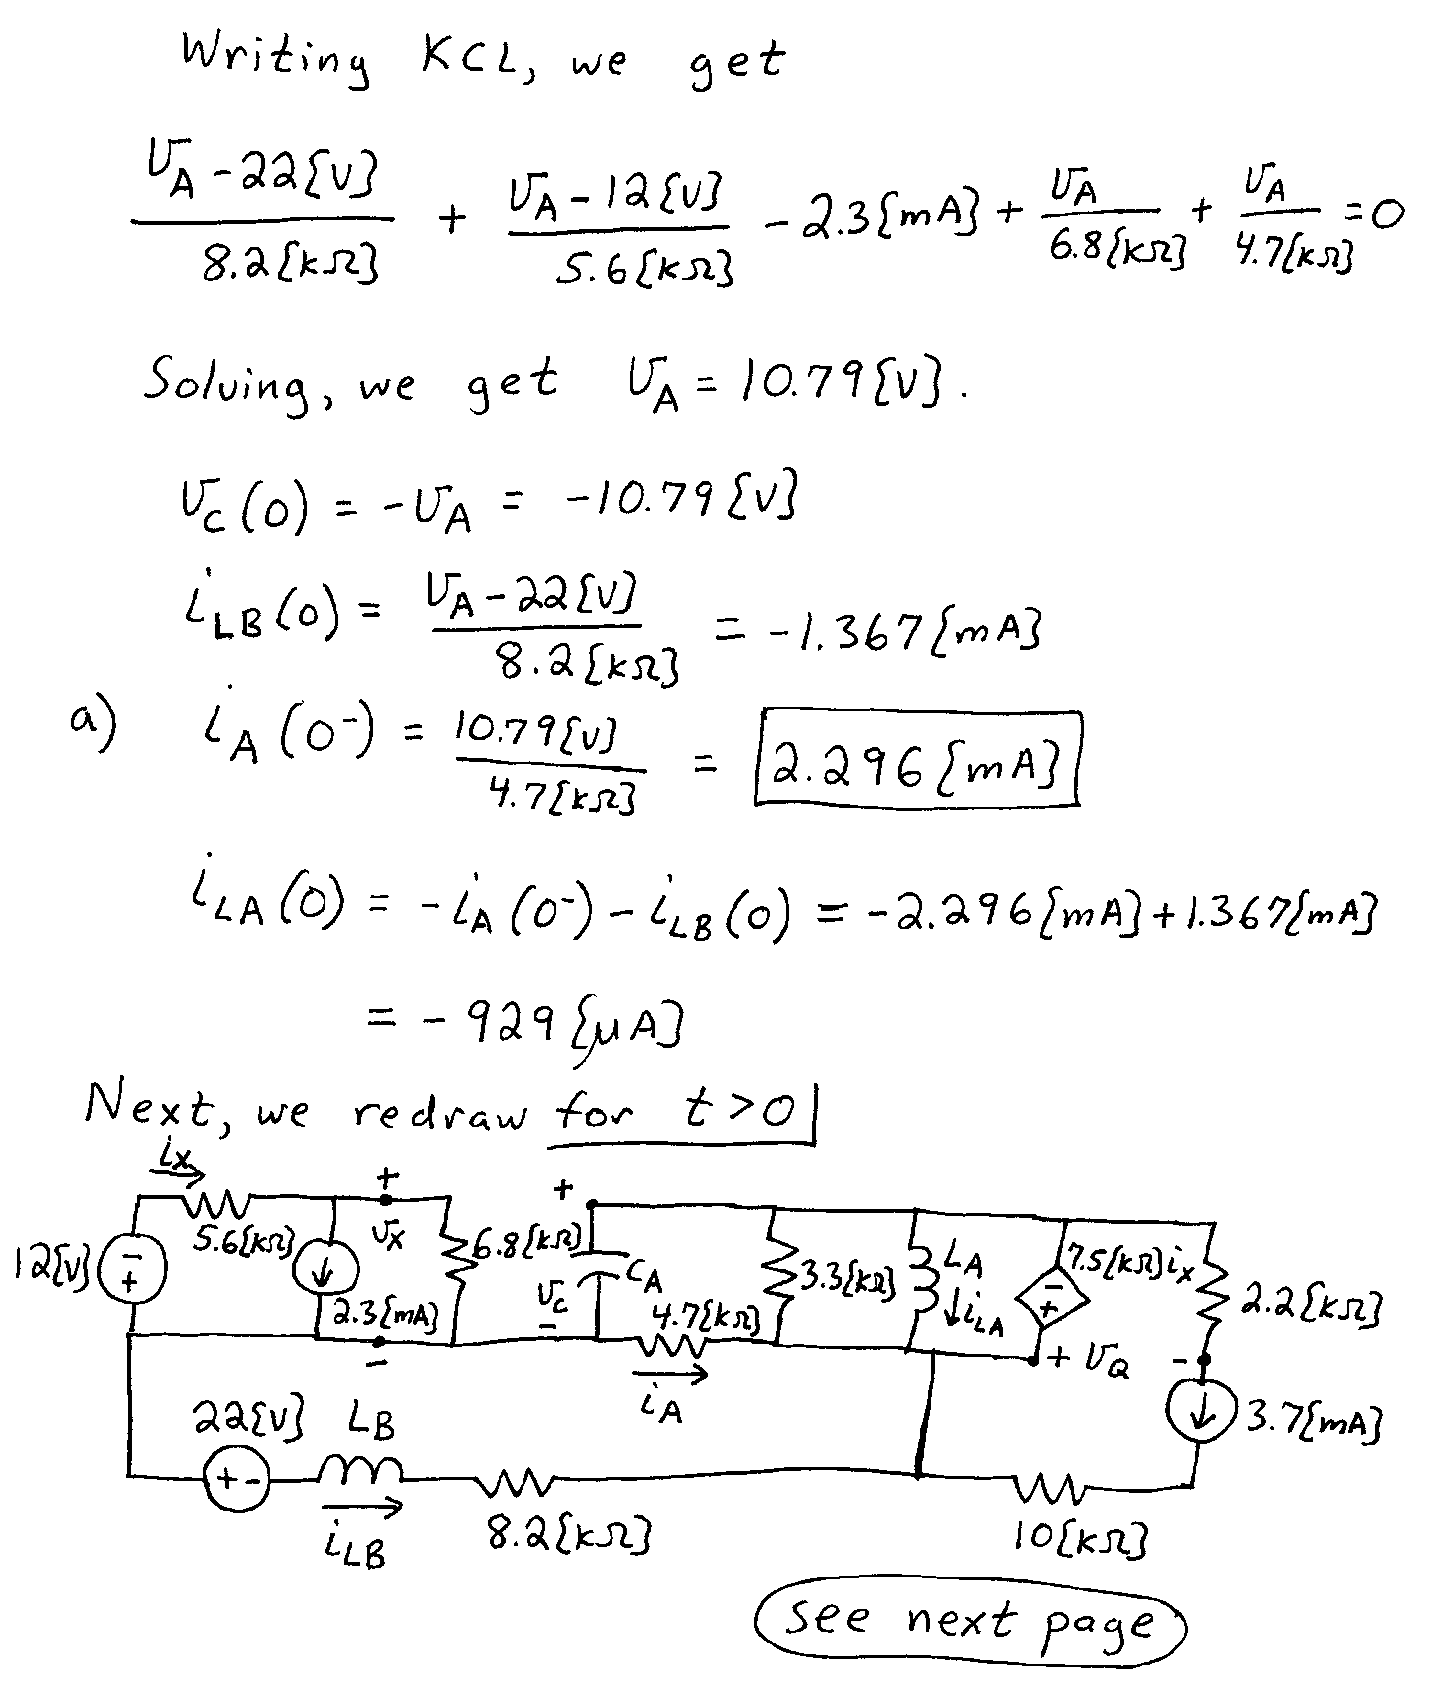 Writing KCL, we get
(v_A - 22[V]) / 8.2[kΩ] + (v_A - 12[V]) / 5.6[kΩ] - 2.3[mA] + v_A / 6.8[kΩ] + v_A / 4.7[kΩ] = 0
Solving, we get v_A = 10.79[V].
v_C(0) = -v_A = -10.79[V]
i_LB(0) = (v_A - 22[V]) / 8.2[kΩ] = -1.367[mA]
a) i_A(0⁻) = 10.79[V] / 4.7[kΩ] = 2.296[mA]
i_LA(0) = -i_A(0⁻) - i_LB(0) = -2.296[mA] + 1.367[mA]
= -929[μA]
Next, we redraw for t>0
i_X
+ +
12[V] - + 5.6[kΩ] 2.3[mA] v_X 6.8[kΩ] v_C C_A 3.3[kΩ] L_A i_LA 7.5[kΩ]i_X - + 2.2[kΩ]
- - 4.7[kΩ] + v_Q -
i_A 3.7[mA]
22[V] L_B
+ -
i_LB 8.2[kΩ] 10[kΩ]
see next page